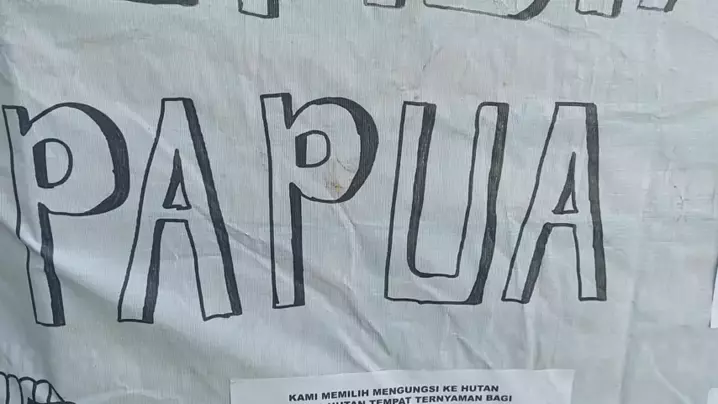 PAPUA
KAMI MEMILIH MENGUNGSI KE HUTAN
HUTAN TEMPAT TERNYAMAN BAGI